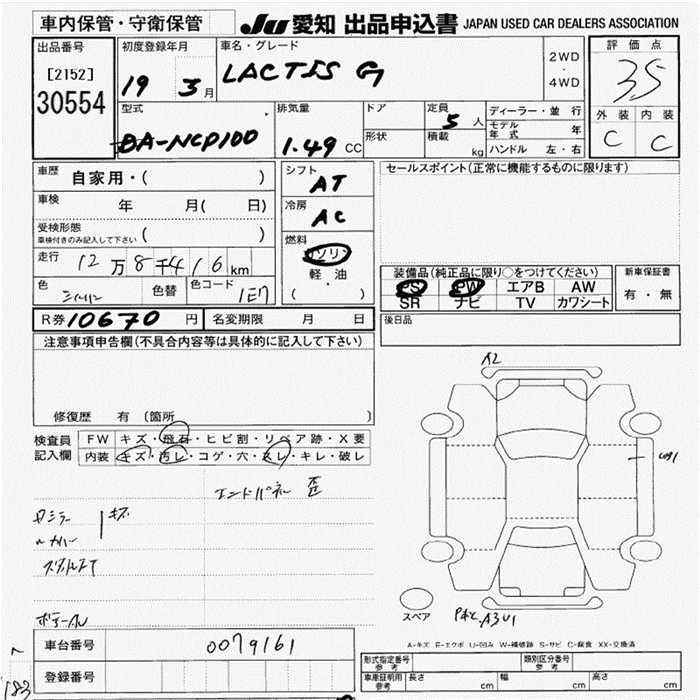 車内保管・守衛保管
JU 愛知 出品申込書 JAPAN USED CAR DEALERS ASSOCIATION
出品番号
[2152]
30554
初度登録年月
19 3月
車名・グレード
LACTIS G
2WD
・
4WD
評価点
35
外装 内装
C C
型式
DA-NCP100
排気量
1.49 CC
ドア
形状
定員
5 人
積載
kg
ディーラー・並行
モデル年式 年
ハンドル 左・右
車歴
自家用・( )
車検
年 月( 日)
受検形態
車検付きのみ記入して下さい ( )
走行
12万8千416km
色
シルバー 色替
色コード
1E7
シフト
AT
冷房
AC
燃料
ガソリン
軽・油
( )
セールスポイント(正常に機能するものに限ります)
装備品(純正品に限り○をつけてください)
PS PW エアB AW
SR ナビ TV カワシート
新車保証書
有・無
R券 10670 円 名変期限 月 日
後日品
注意事項申告欄(不具合内容等は具体的に記入して下さい)
修復歴 有 〔箇所
検査員
記入欄
FW キズ・飛石・ヒビ割・リペア跡・X要
内装 キズ・汚レ・コゲ・穴・スレ・キレ・破レ
エンドパネル 歪
キズ
A2
スペア
A3U1
A-キズ E-エクボ U-凹み W-補修跡 S-サビ C-腐食 XX-交換済
車台番号 0079161
登録番号
形式指定番号
参考
類別区分番号
参考
車庫証明用
参考
長さ cm 幅 cm 高さ cm
183